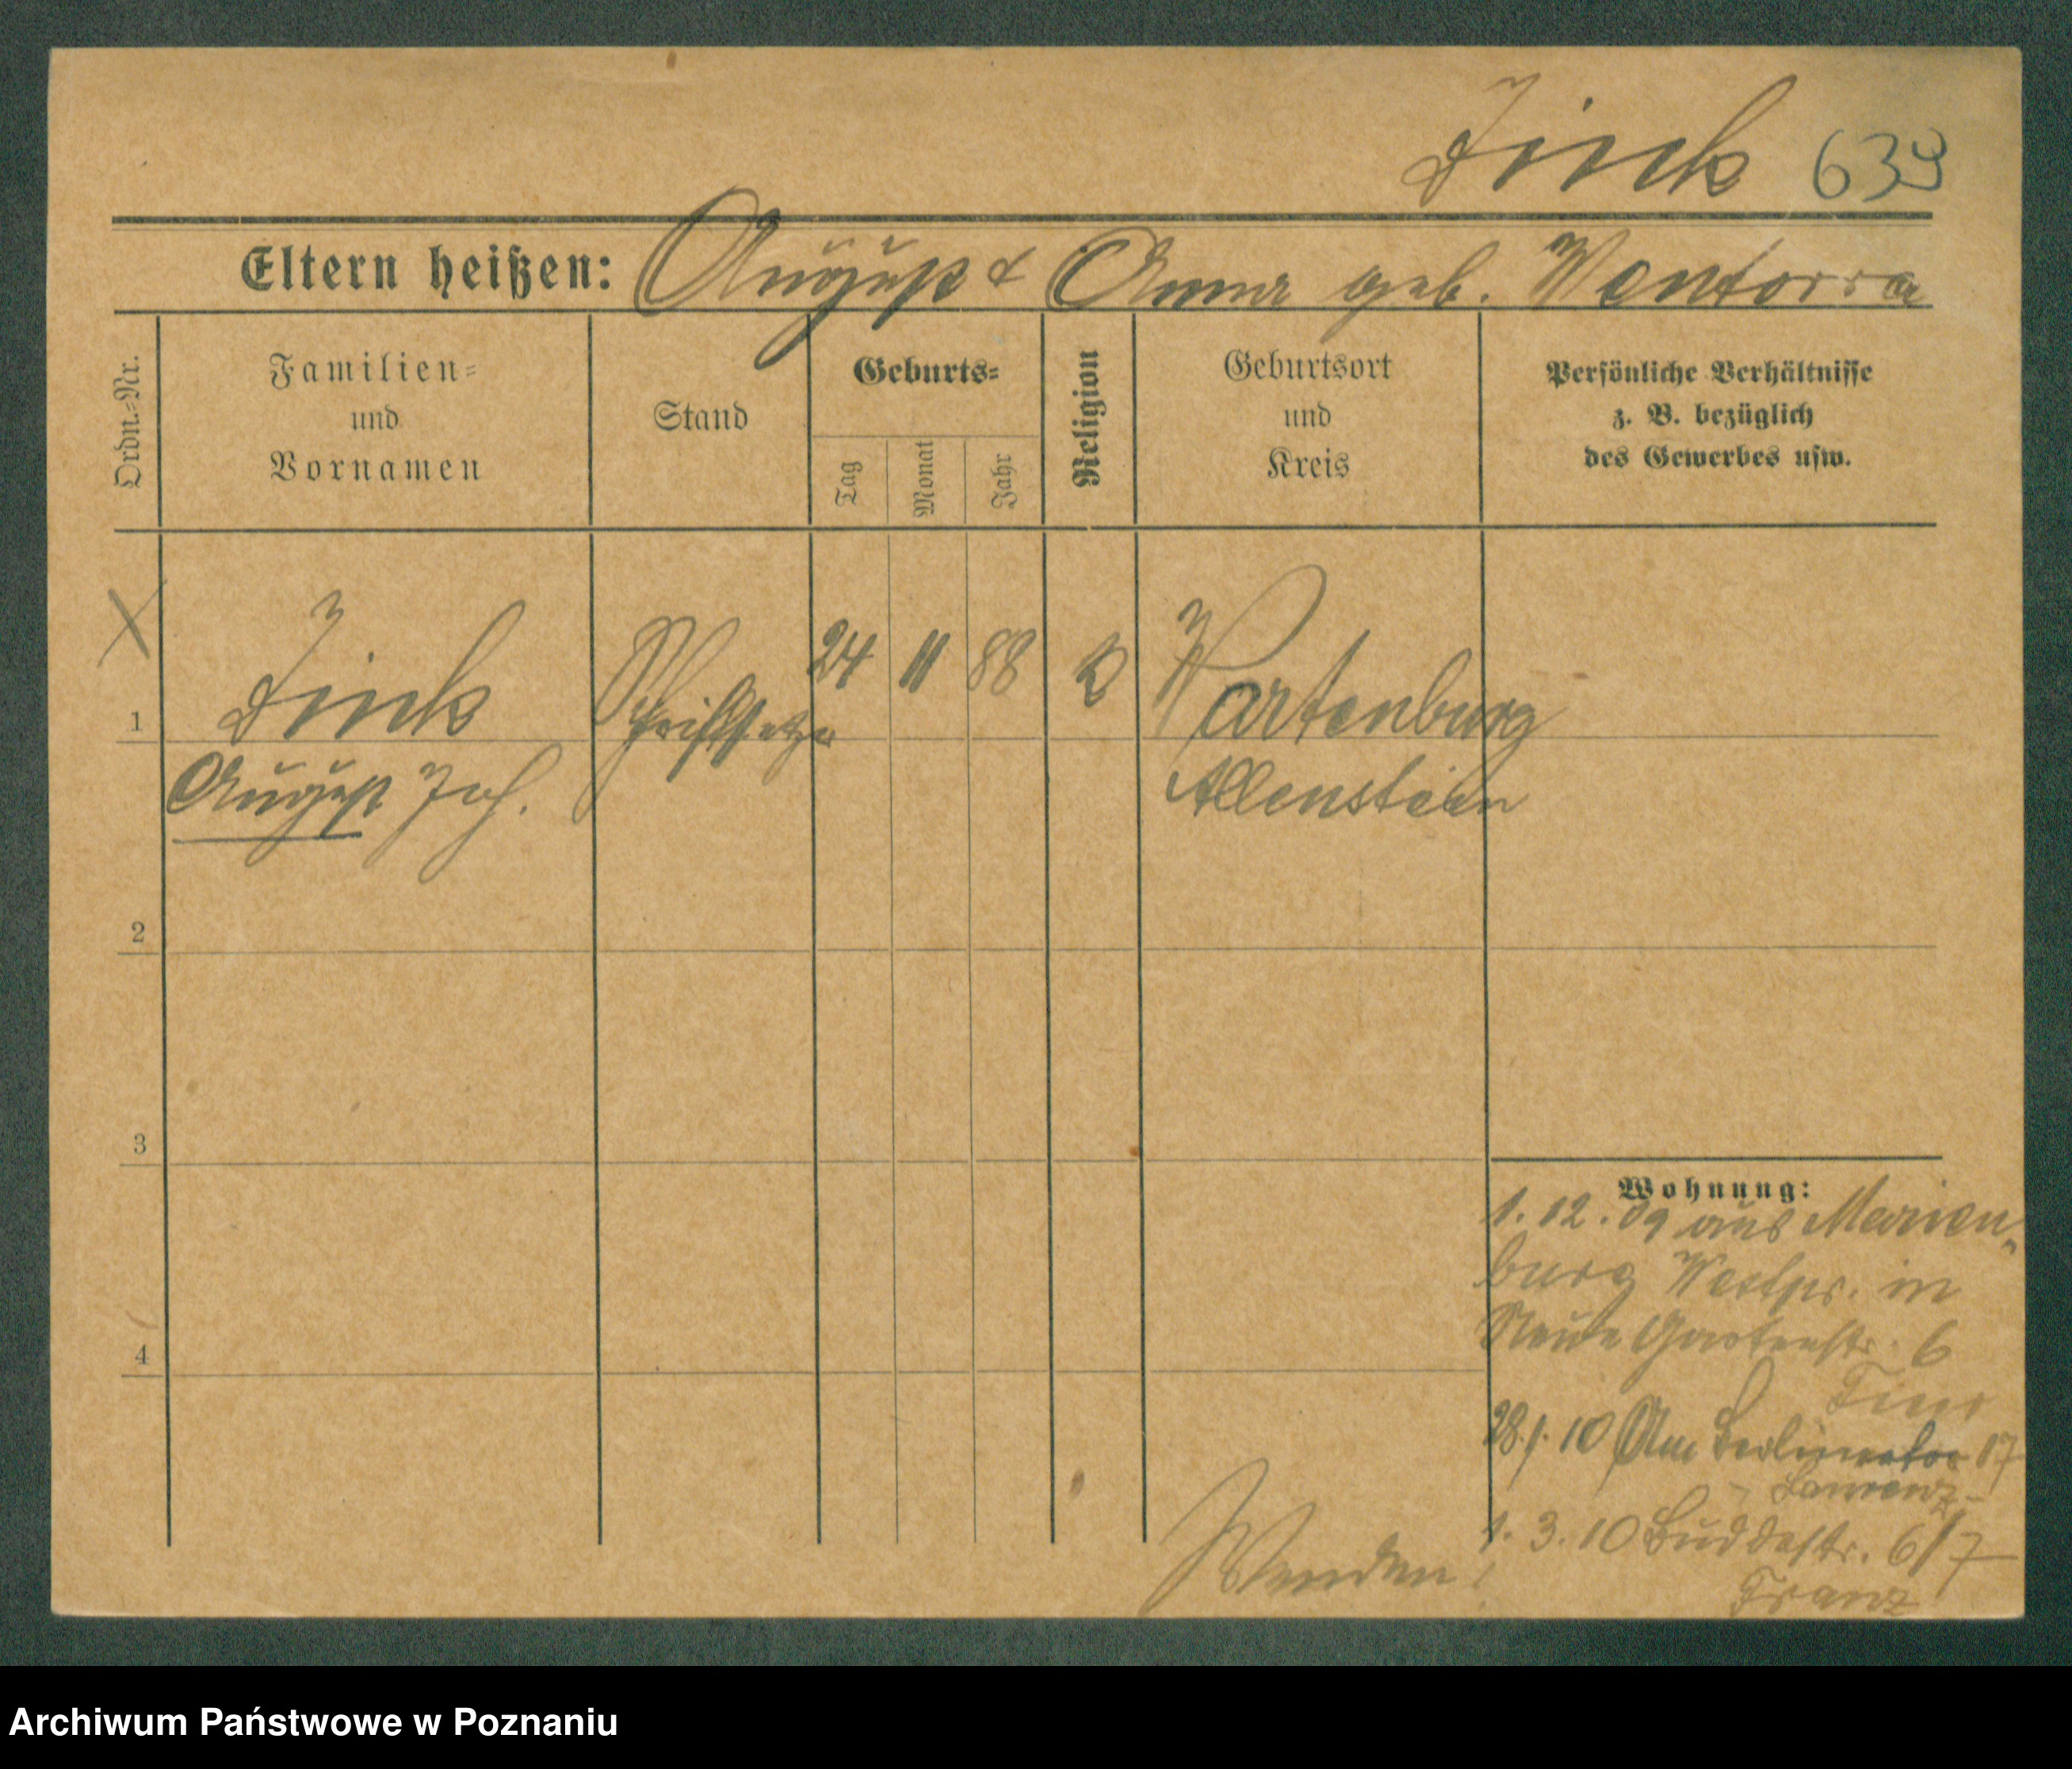 Zink 639
Eltern heißen: August & Anna geb. Wontorra
Ordn.=Nr.
Familien=
und
Vornamen
Stand
Geburts=
Tag
Monat
Jahr
Religion
Geburtsort
und
Kreis
Persönliche Verhältnisse
z. B. bezüglich
des Gewerbes usw.
1
Zink
August Joh.
Schriftsetzer
24 11 88
K
Wartenburg
Allenstein
2
3
4
Wohnung:
1. 12. 09 aus Marien„
burg Westpr. in
Neue Gartenstr. 6
28. 1. 10 Am Berlinertor 17
1. 3. 10 Buddestr. 6/7
Franz
Wenden!
Archiwum Państwowe w Poznaniu